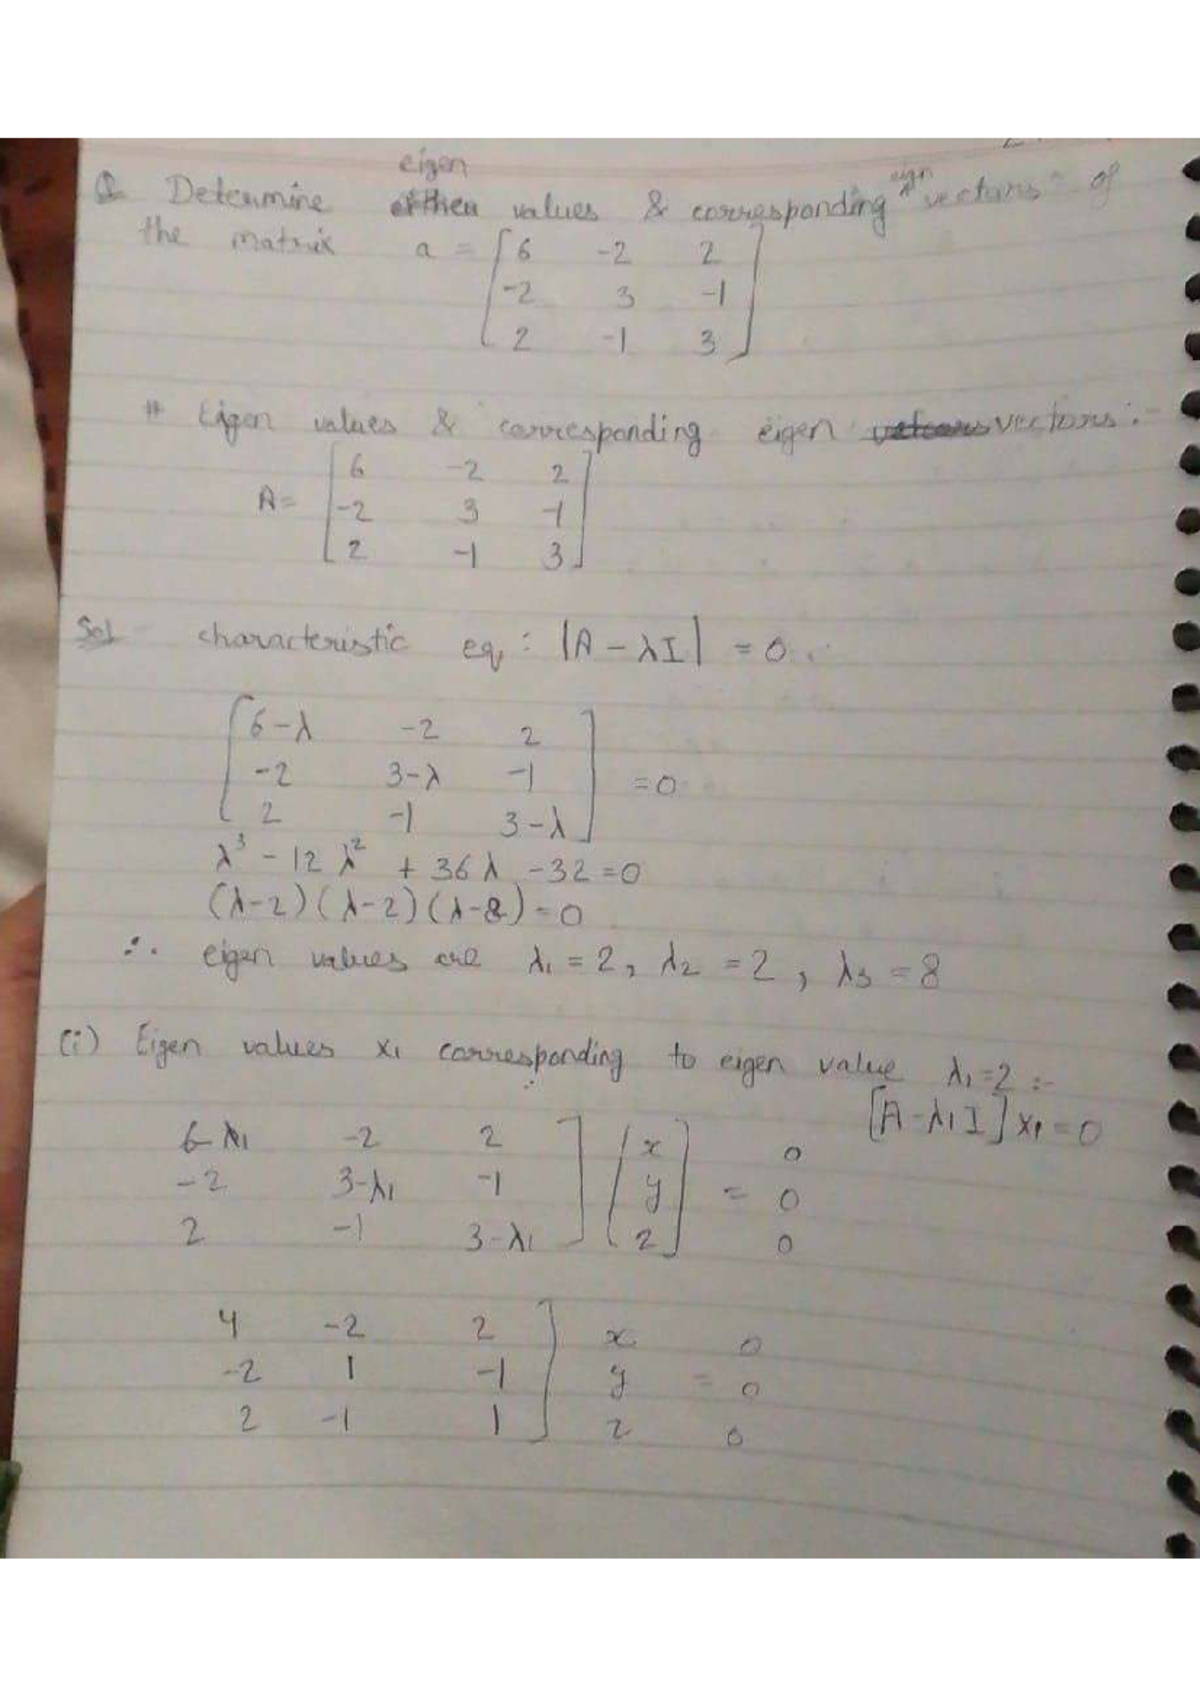 eigen
Q Determine values & corresponding eign vectors of
the matrix a = [6 -2 2
-2 3 -1
2 -1 3]
# Eigen values & corresponding eigen vectors :-
A= [6 -2 2
-2 3 -1
2 -1 3]
Sol characteristic eq : |A - λI| = 0
[6-λ -2 2
-2 3-λ -1 =0
2 -1 3-λ]
λ³ - 12 λ² + 36 λ - 32 = 0
(λ-2) (λ-2) (λ-8) = 0
∴ eigen values are λ₁ = 2, λ₂ = 2, λ₃ = 8
(i) Eigen values x₁ corresponding to eigen value λ₁=2 :-
[A-λ₁I] x₁ = 0
6-λ₁ -2 2 ] [x 0
-2 3-λ₁ -1 y = 0
2 -1 3-λ₁ ] z] 0
4 -2 2 ] x 0
-2 1 -1 y = 0
2 -1 1 ] z 0